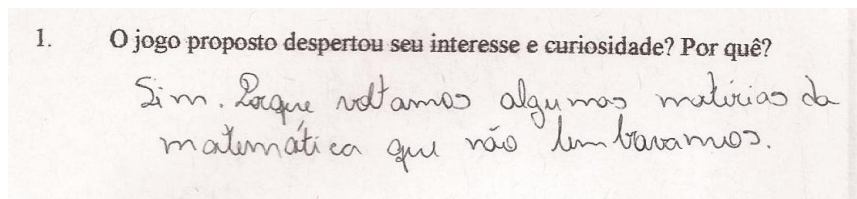 1. O jogo proposto despertou seu interesse e curiosidade? Por quê?
Sim. Porque voltamos algumas matérias da
matemática que não lembravamos.